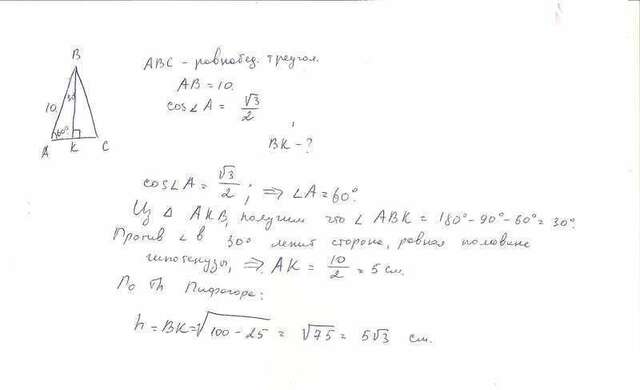 B
10
30
60°
A
K
C
ABC - равнобед. треугол.
AB = 10.
cos∠A = √3/2
BK - ?
cos∠A = √3/2; ⇒ ∠A = 60°.
Из Δ AKB, получим что ∠ABK = 180° - 90° - 60° = 30°.
Против ∠ в 30° лежит сторона, равная половине
гипотенузы, ⇒ AK = 10/2 = 5 см.
По Th Пифагора:
h = BK = √100 - 25 = √75 = 5√3 см.